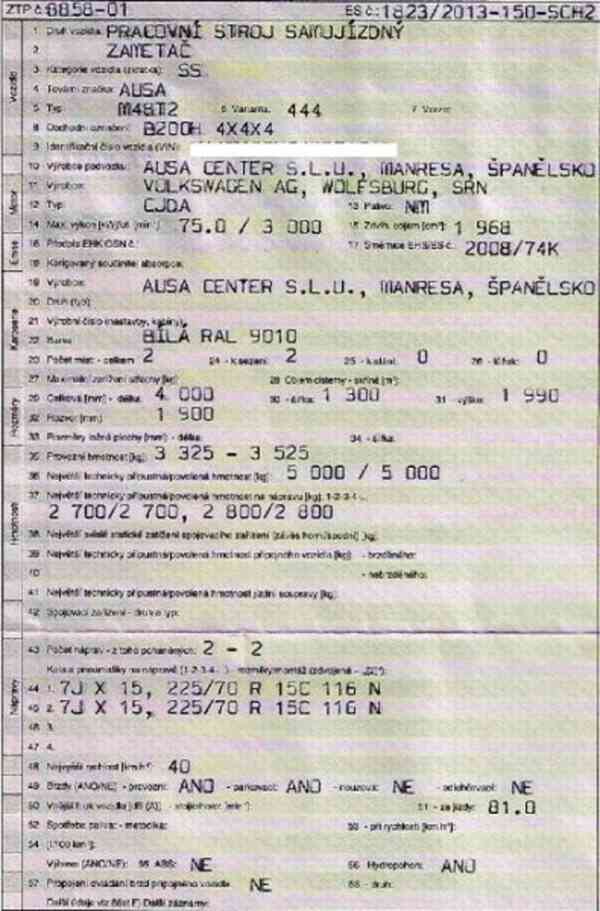 ZTP č. 8858-01 ES č.: 1823/2013-150-SCH2
1 Druh vozidla: PRACOVNÍ STROJ SAMOJÍZDNÝ
2 ZAMETAČ
3 Kategorie vozidla (zkratka): SS
4 Tovární značka: AUSA
5 Typ: M48T2 6 Varianta: 444 7 Verze:
8 Obchodní označení: B200H 4X4X4
9 Identifikační číslo vozidla (VIN):
10 Výrobce podvozku: AUSA CENTER S.L.U., MANRESA, ŠPANĚLSKO
11 Výrobce: VOLKSWAGEN AG, WOLFSBURG, SRN
12 Typ: CJDA 13 Palivo: NM
14 Max. výkon [kW]/ot. [min⁻¹]: 75.0 / 3 000 15 Zdvih. objem [cm³]: 1 968
16 Předpis EHK OSN č.: 17 Směrnice EHS/ES č.: 2008/74K
18 Korigovaný součinitel absorpce:
19 Výrobce: AUSA CENTER S.L.U., MANRESA, ŠPANĚLSKO
20 Druh (typ):
21 Výrobní číslo (nástavby, kabiny):
22 Barva: BÍLÁ RAL 9010
23 Počet míst: - celkem 2 24 - k sezení: 2 25 - k stání: 0 26 - lůžek: 0
27 Maximální zatížení střechy [kg]: 28 Objem cisterny - skříně [m³]:
29 Celková [mm] - délka: 4 000 30 - šířka: 1 300 31 - výška: 1 990
32 Rozvor [mm]: 1 900
33 Rozměry ložné plochy [mm] - délka: 34 - šířka:
35 Provozní hmotnost [kg]: 3 325 - 3 525
36 Největší technicky přípustná/povolená hmotnost [kg]: 5 000 / 5 000
37 Největší technicky přípustná/povolená hmotnost na nápravu [kg]: 1-2-3-4-..
2 700/2 700, 2 800/2 800
38 Největší svislé statické zatížení spojovacího zařízení (závěs horní/spodní) [kg]:
39 Největší technicky přípustná/povolená hmotnost přípojného vozidla [kg]: - brzděného:
40 - nebrzděného:
41 Největší technicky přípustná/povolená hmotnost jízdní soupravy [kg]:
42 Spojovací zařízení - druh a typ:
43 Počet náprav - z toho poháněných: 2 - 2
Kola a pneumatiky na nápravě (1-2-3-4-..) - rozměry/montáž (zdvojená - „2x“):
44 1. 7J X 15, 225/70 R 15C 116 N
45 2. 7J X 15, 225/70 R 15C 116 N
46 3.
47 4.
48 Nejvyšší rychlost [km.h⁻¹]: 40
49 Brzdy (ANO/NE) - provozní: ANO - parkovací: ANO - nouzová: NE - odlehčovací: NE
50 Vnější hluk vozidla [dB (A)] - stojícího/ot. [min⁻¹]: 51 - za jízdy: 81.0
52 Spotřeba paliva: - metodika: 53 - při rychlosti [km.h⁻¹]:
54 [l.100 km⁻¹]:
Výbava (ANO/NE): 55 ABS: NE 56 Hydropohon: ANO
57 Propojení ovládání brzd přípojného vozidla: NE 58 - druh:
Další údaje viz část F) Další záznamy:
Vozidlo
Motor
Emise
Karoserie
Rozměry
Hmotnosti
Nápravy